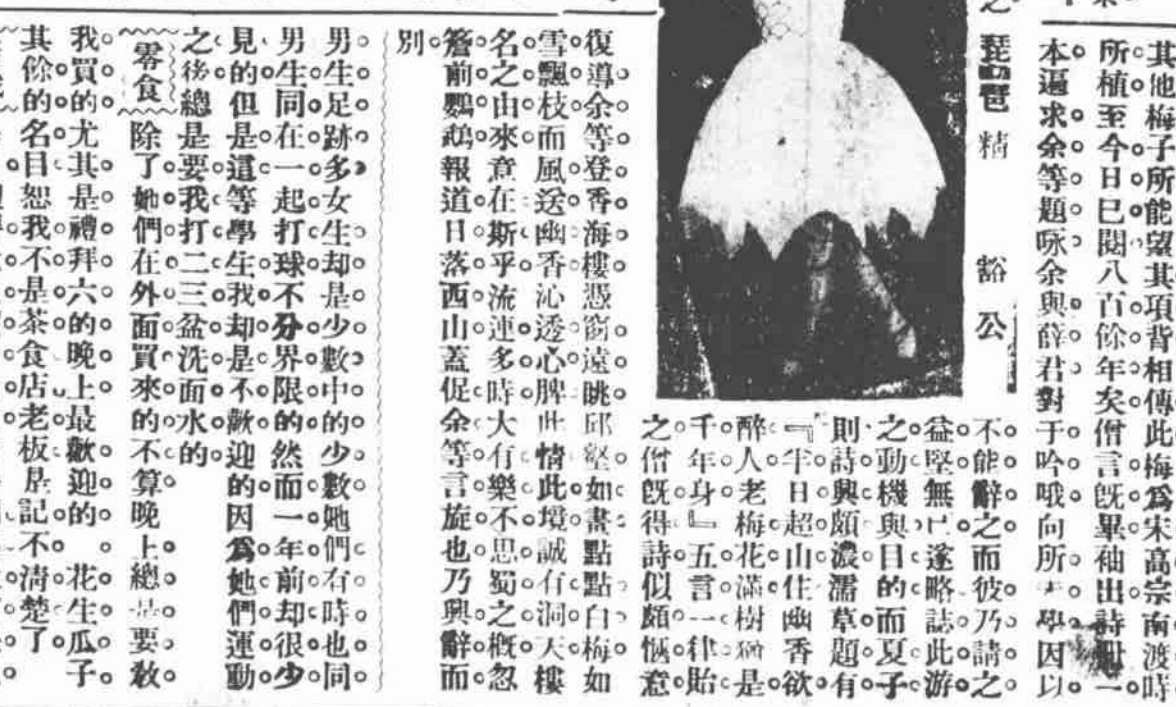 其他梅子所能望其項背相傳此梅爲宋高宗南渡時
所植至今日已閱八百餘年矣僧言旣畢袖出詩一
本遍求余等題咏余與薛君對于吟哦向所學因以
不能辭之而彼乃請之
益堅無已遂略誌此游
之動機與目的而夏子
則詩興頗濃濡草題有
『半日超山住幽香欲
醉人老梅花滿樹猶是
千年身』五言一律貽
之僧旣得詩似頗愜意
琵琶精 豁公
復導余等登香海樓憑窗遠眺邱壑如畫點點白梅如
雪飄枝而風送幽香沁透心脾此情此境誠有洞天樓
名之由來意在斯乎流連多時大有樂不思蜀之概忽
簷前鸚鵡報道日落西山蓋促余等言旋也乃興辭而
別
男生足跡多女生却是少數中的少數她們有時也同
男生同在一起打球不分界限的然而一年前却很少
見的但是這等學生我却是不歡迎的因爲她們運動
之後總是要我打二三盆洗面水的
零食 除了她們在外面買來的不算晚上總是要教
我買的尤其是禮拜六的晚上最歡迎的 花生瓜子
其餘的名目恕我不是茶食店老板居記不清楚了